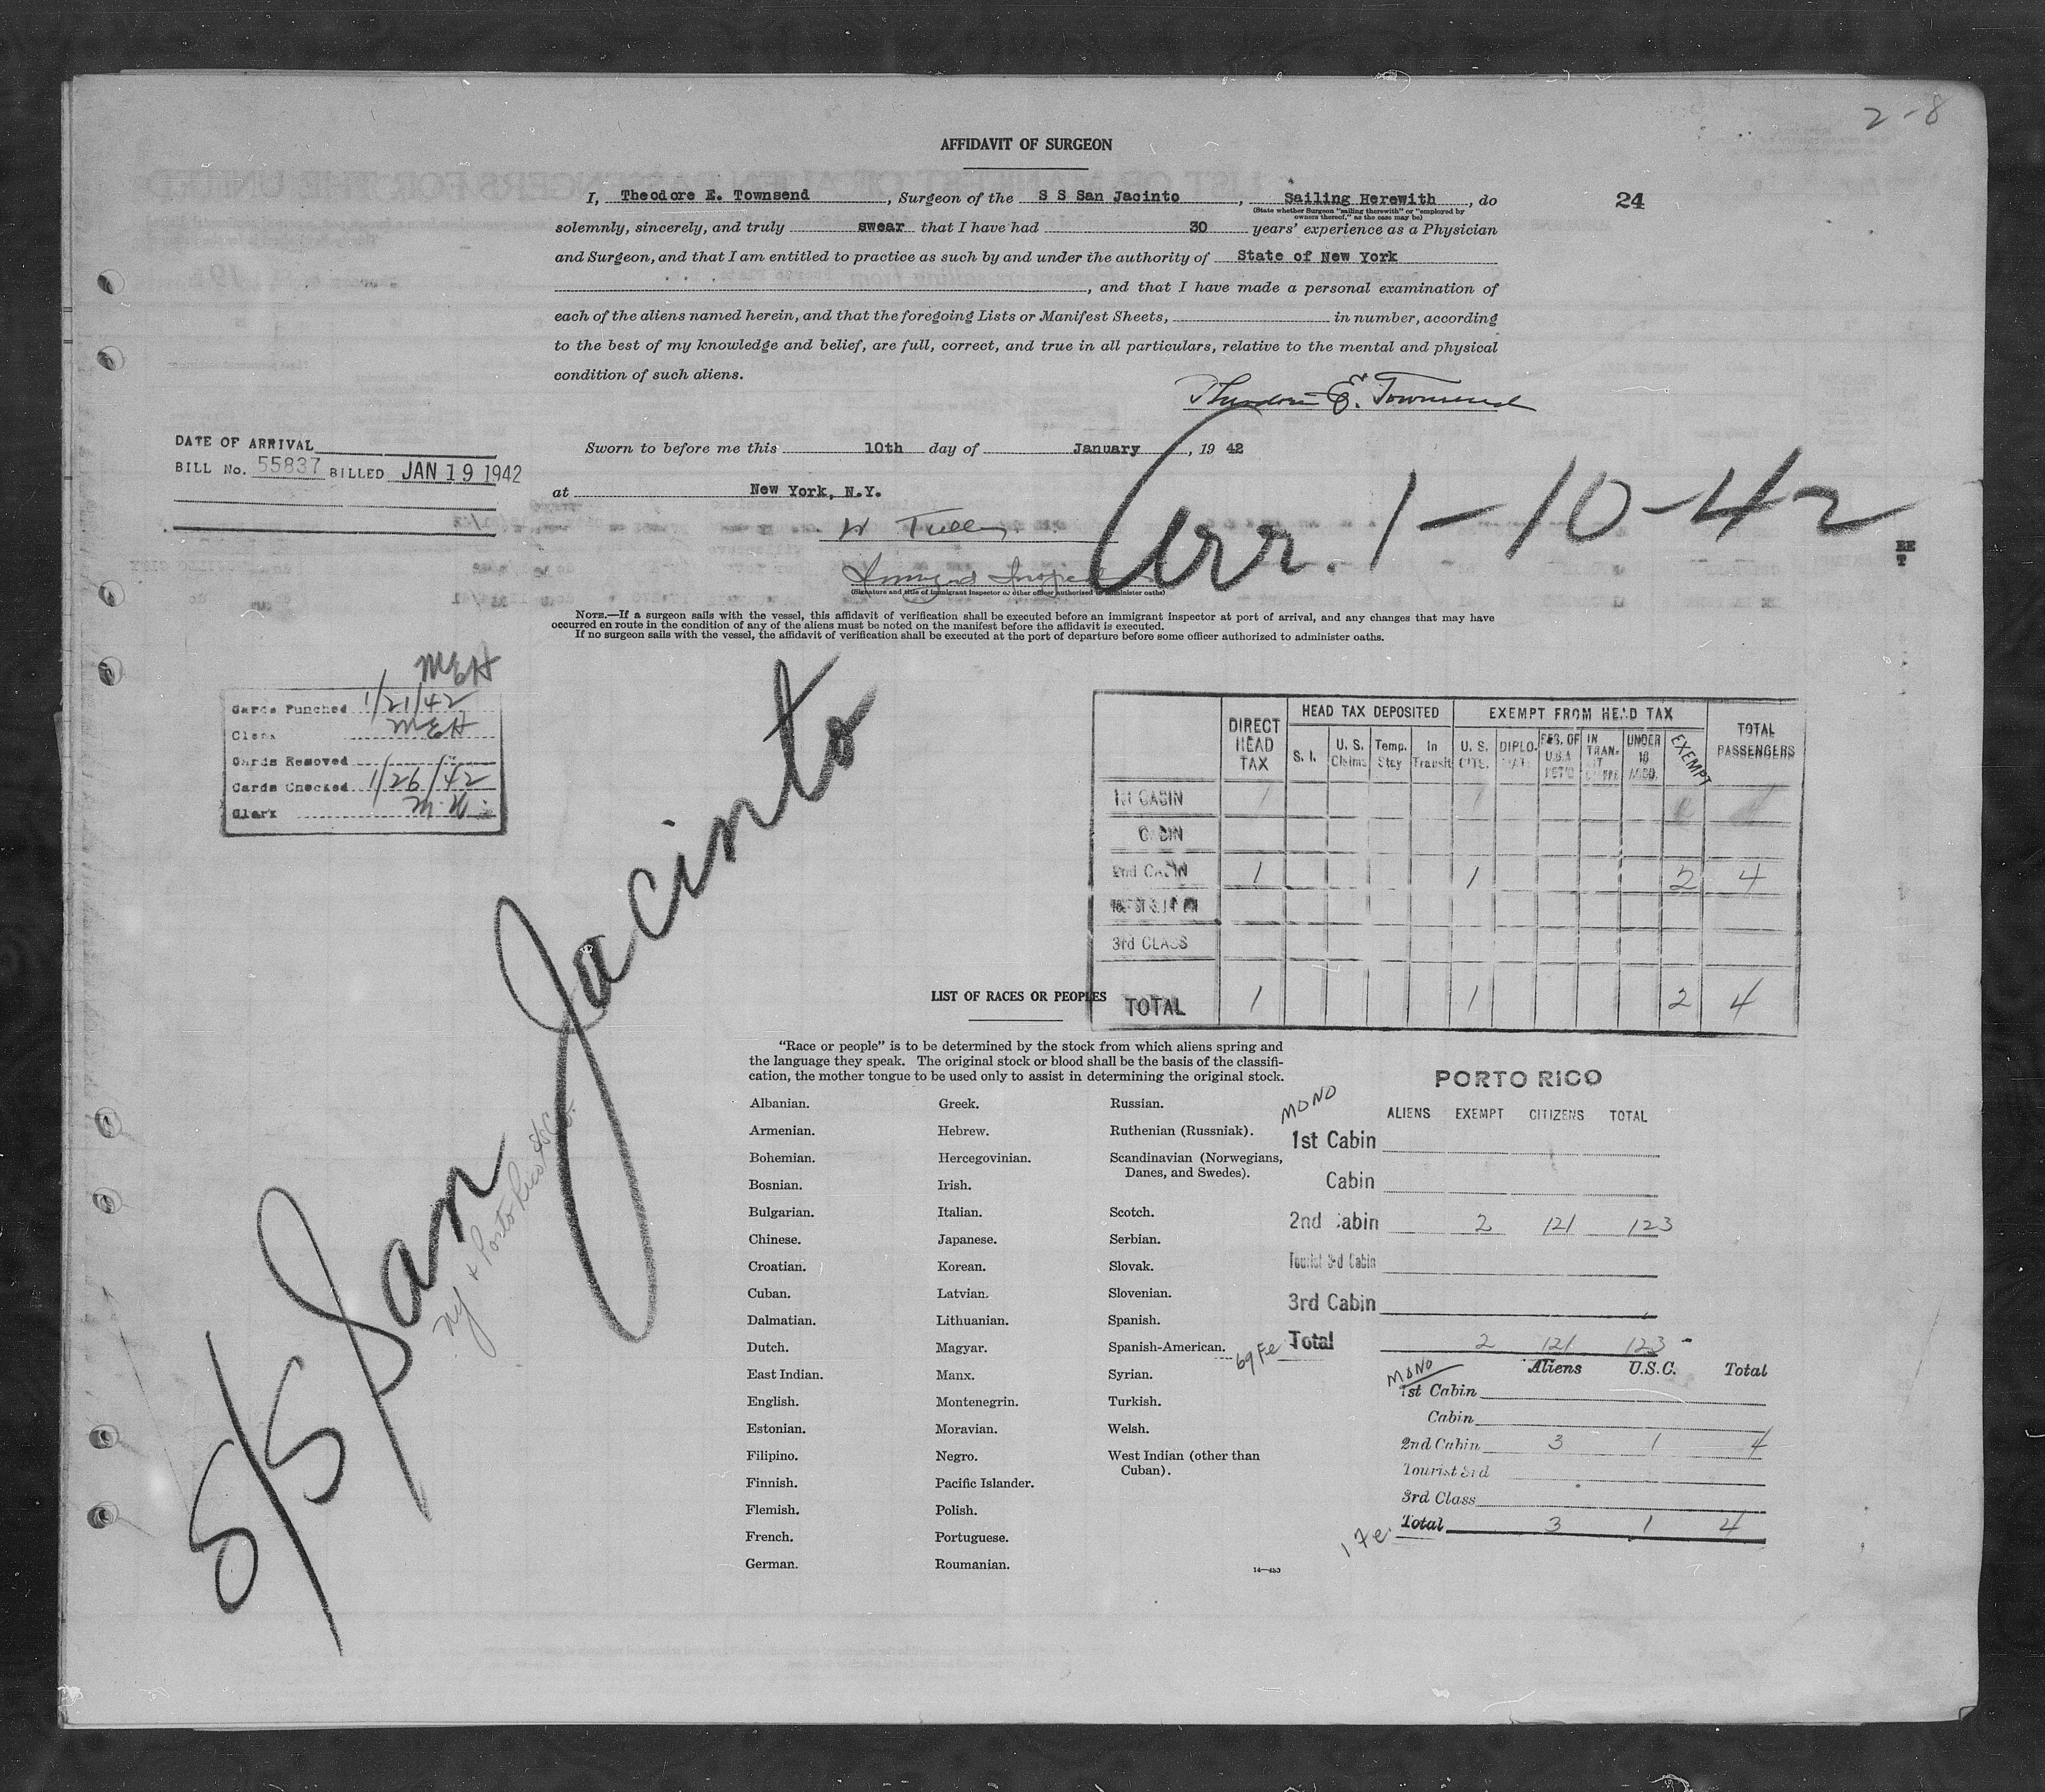 2-8
AFFIDAVIT OF SURGEON
I, Theodore E. Townsend, Surgeon of the S S San Jacinto, Sailing Herewith, do
24
(State whether Surgeon "sailing therewith" or "employed by
owners thereof," as the case may be)
solemnly, sincerely, and truly swear that I have had 30 years' experience as a Physician
and Surgeon, and that I am entitled to practice as such by and under the authority of State of New York
, and that I have made a personal examination of
each of the aliens named herein, and that the foregoing Lists or Manifest Sheets, in number, according
to the best of my knowledge and belief, are full, correct, and true in all particulars, relative to the mental and physical
condition of such aliens.
Theodore E. Townsend
DATE OF ARRIVAL
BILL No. 55837 BILLED JAN 19 1942
Sworn to before me this 10th day of January, 19 42
at New York, N.Y.
Arr. 1-10-42
W Tully
Immigrant Inspector
(Signature and title of immigrant inspector or other officer authorized to administer oaths)
NOTE.—If a surgeon sails with the vessel, this affidavit of verification shall be executed before an immigrant inspector at port of arrival, and any changes that may have
occurred en route in the condition of any of the aliens must be noted on the manifest before the affidavit is executed.
If no surgeon sails with the vessel, the affidavit of verification shall be executed at the port of departure before some officer authorized to administer oaths.
MEH
Cards Punched 1/21/42
Clerk MEH
Cards Removed
Cards Checked 1/26/42
Clerk M.H.
S/S San Jacinto
NY & Porto Rico SS Co.
DIRECT HEAD TAX
HEAD TAX DEPOSITED
EXEMPT FROM HEAD TAX
TOTAL PASSENGERS
S. I.
U. S. Claims
Temp. Stay
In Transit
U. S. CITS.
DIPLOMAT
RES. OF U.S.A RET'D
IN TRANSIT
UNDER 16 ACCO.
EXEMPT
1st CABIN
CABIN
2nd CABIN 1 1 2 4
3rd CLASS
TOTAL 1 1 2 4
LIST OF RACES OR PEOPLES
"Race or people" is to be determined by the stock from which aliens spring and
the language they speak. The original stock or blood shall be the basis of the classifi-
cation, the mother tongue to be used only to assist in determining the original stock.
Albanian.
Armenian.
Bohemian.
Bosnian.
Bulgarian.
Chinese.
Croatian.
Cuban.
Dalmatian.
Dutch.
East Indian.
English.
Estonian.
Filipino.
Finnish.
Flemish.
French.
German.
Greek.
Hebrew.
Hercegovinian.
Irish.
Italian.
Japanese.
Korean.
Latvian.
Lithuanian.
Magyar.
Manx.
Montenegrin.
Moravian.
Negro.
Pacific Islander.
Polish.
Portuguese.
Roumanian.
Russian.
Ruthenian (Russniak).
Scandinavian (Norwegians,
Danes, and Swedes).
Scotch.
Serbian.
Slovak.
Slovenian.
Spanish.
Spanish-American.
Syrian.
Turkish.
Welsh.
West Indian (other than
Cuban).
14—453
PORTO RICO
MONO
ALIENS EXEMPT CITIZENS TOTAL
1st Cabin
Cabin
2nd Cabin 2 121 123
Tourist 3rd Cabin
3rd Cabin
69 Fe Total 2 121 123
MONO
Aliens U.S.C. Total
1st Cabin
Cabin
2nd Cabin 3 1 4
Tourist 3rd
3rd Class
1 Fe. Total 3 1 4